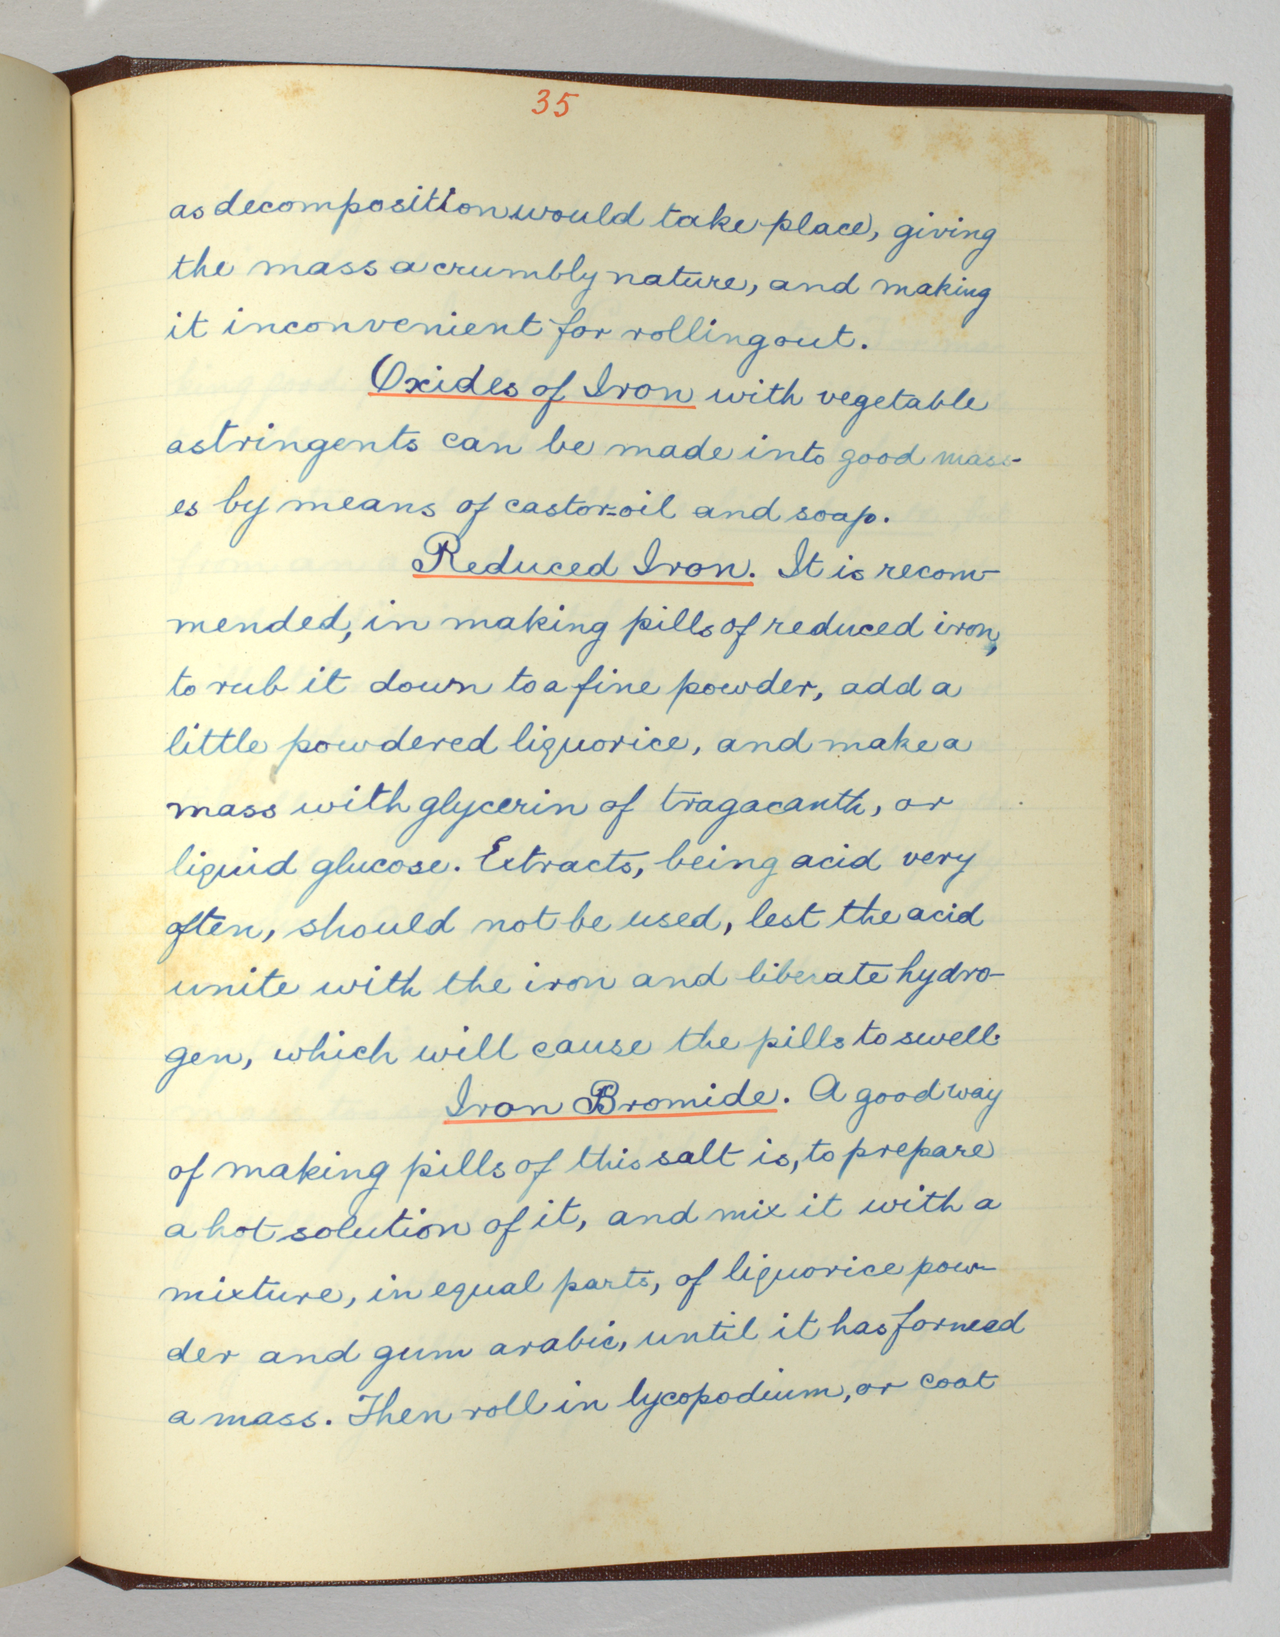 35
as decomposition would take place, giving
the mass a crumbly nature, and making
it inconvenient for rolling out.
Oxides of Iron with vegetable
astringents can be made into good mass-
es by means of castor-oil and soap.
Reduced Iron. It is recom-
mended, in making pills of reduced iron,
to rub it down to a fine powder, add a
little powdered liquorice, and make a
mass with glycerin of tragacanth, or
liquid glucose. Extracts, being acid very
often, should not be used, lest the acid
unite with the iron and liberate hydro-
gen, which will cause the pills to swell.
Iron Bromide. A good way
of making pills of this salt is, to prepare
a hot solution of it, and mix it with a
mixture, in equal parts, of liquorice pow-
der and gum arabic, until it has formed
a mass. Then roll in lycopodium, or coat